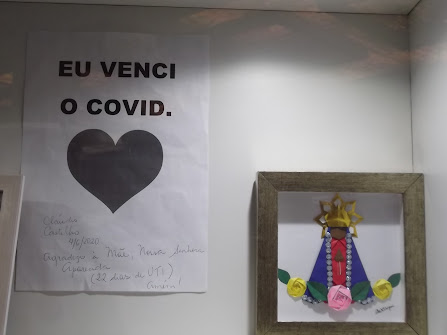 EU VENCI
O COVID.
9/6/2020
Agradeço à Mãe, Nossa Senhora
Aparecida
(22 dias de UTI)